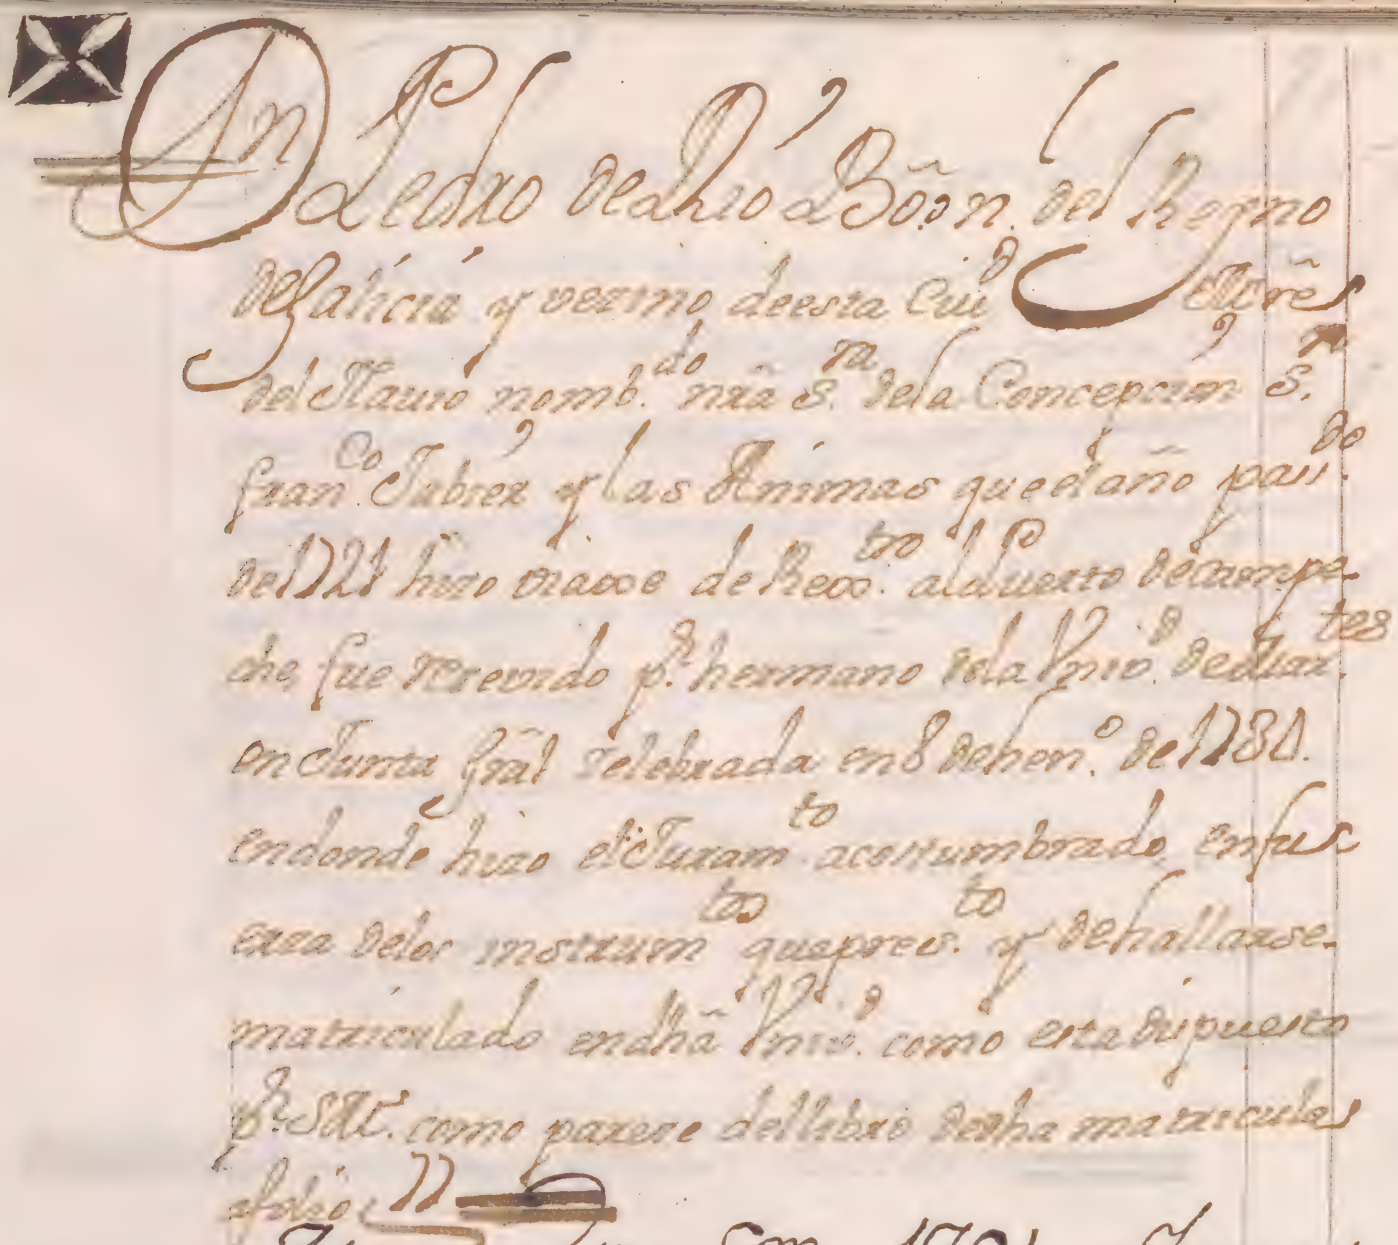 Dn Pedro del Rio Bo.n. del Reyno
de Galicia y vezino de esta Ciud Mre
del Navio nomb.do nra S.ra de la Concepcion S.n
fran.co Jabier y las Animas que el año pasdo
del 1721 hizo viaxe de Rexx.tro al Puerto de Campe-
che, fue rezevido p.r hermano dela Vniv.d de Mar.tes
en Junta Gral zelebrada en 8 de hen.o del 1731.
en donde hizo el Juram.to acostumbrado, en fu
erza delos instrum.tos que pres.to y de hallarse
matriculado en dha Vniv.d como esta dispuesto
p.r S.M. como pareze del libro de dha matricula
afolio 77